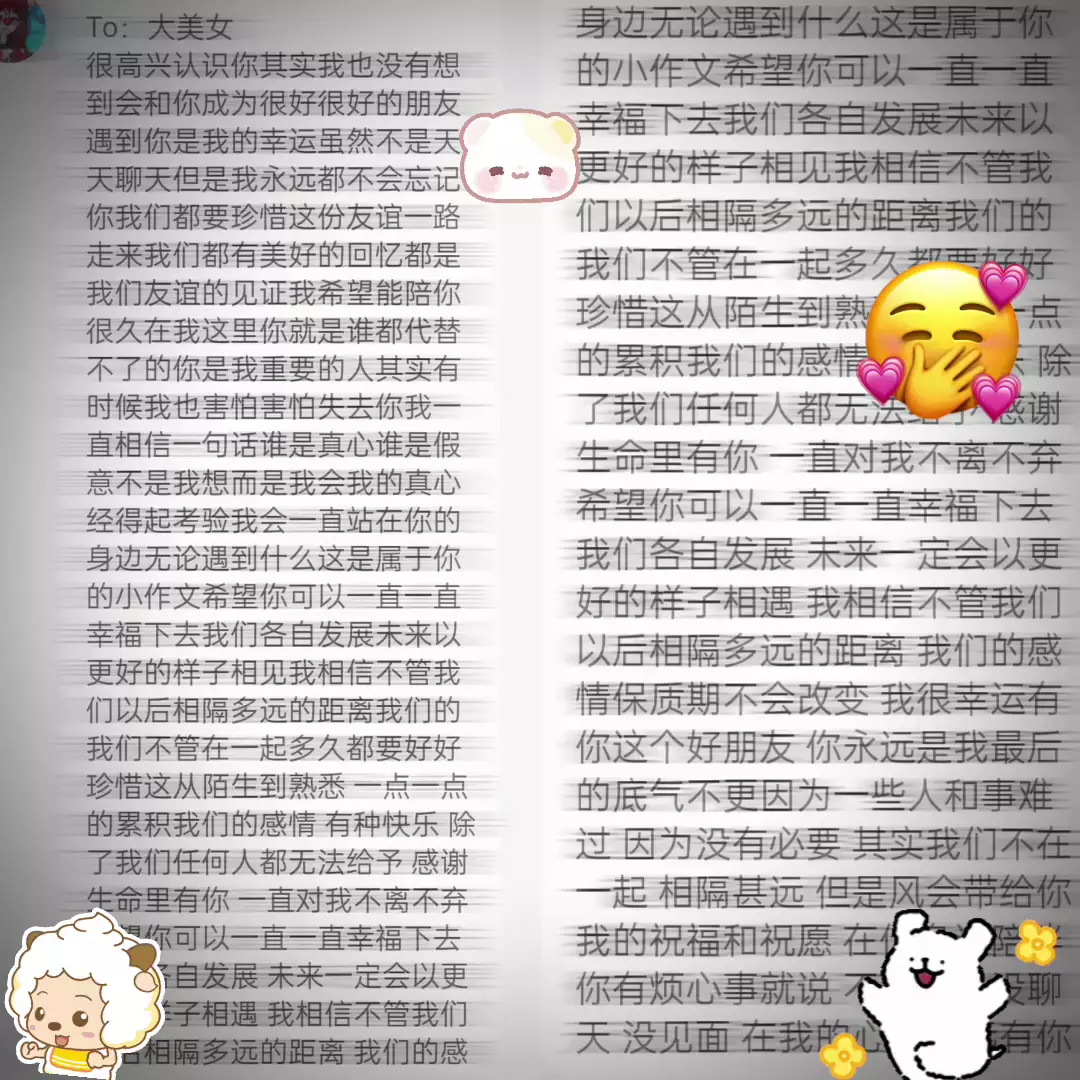 To：大美女
很高兴认识你其实我也没有想
到会和你成为很好很好的朋友
遇到你是我的幸运虽然不是天
天聊天但是我永远都不会忘记
你我们都要珍惜这份友谊一路
走来我们都有美好的回忆都是
我们友谊的见证我希望能陪你
很久在我这里你就是谁都代替
不了的你是我重要的人其实有
时候我也害怕害怕失去你我一
直相信一句话谁是真心谁是假
意不是我想而是我会我的真心
经得起考验我会一直站在你的
身边无论遇到什么这是属于你
的小作文希望你可以一直一直
幸福下去我们各自发展未来以
更好的样子相见我相信不管我
们以后相隔多远的距离我们的
我们不管在一起多久都要好好
珍惜这从陌生到熟悉 一点一点
的累积我们的感情 有种快乐 除
了我们任何人都无法给予 感谢
生命里有你 一直对我不离不弃
你可以一直一直幸福下去
各自发展 未来一定会以更
样子相遇 我相信不管我们
相隔多远的距离 我们的感
身边无论遇到什么这是属于你
的小作文希望你可以一直一直
幸福下去我们各自发展未来以
更好的样子相见我相信不管我
们以后相隔多远的距离我们的
我们不管在一起多久都要好好
珍惜这从陌生到熟 一点
的累积我们的感情 除
了我们任何人都无法给予 感谢
生命里有你 一直对我不离不弃
希望你可以一直一直幸福下去
我们各自发展 未来一定会以更
好的样子相遇 我相信不管我们
以后相隔多远的距离 我们的感
情保质期不会改变 我很幸运有
你这个好朋友 你永远是我最后
的底气不更因为一些人和事难
过 因为没有必要 其实我们不在
一起 相隔甚远 但是风会带给你
我的祝福和祝愿 在
你有烦心事就说 没聊
天 没见面 在我的心 有你